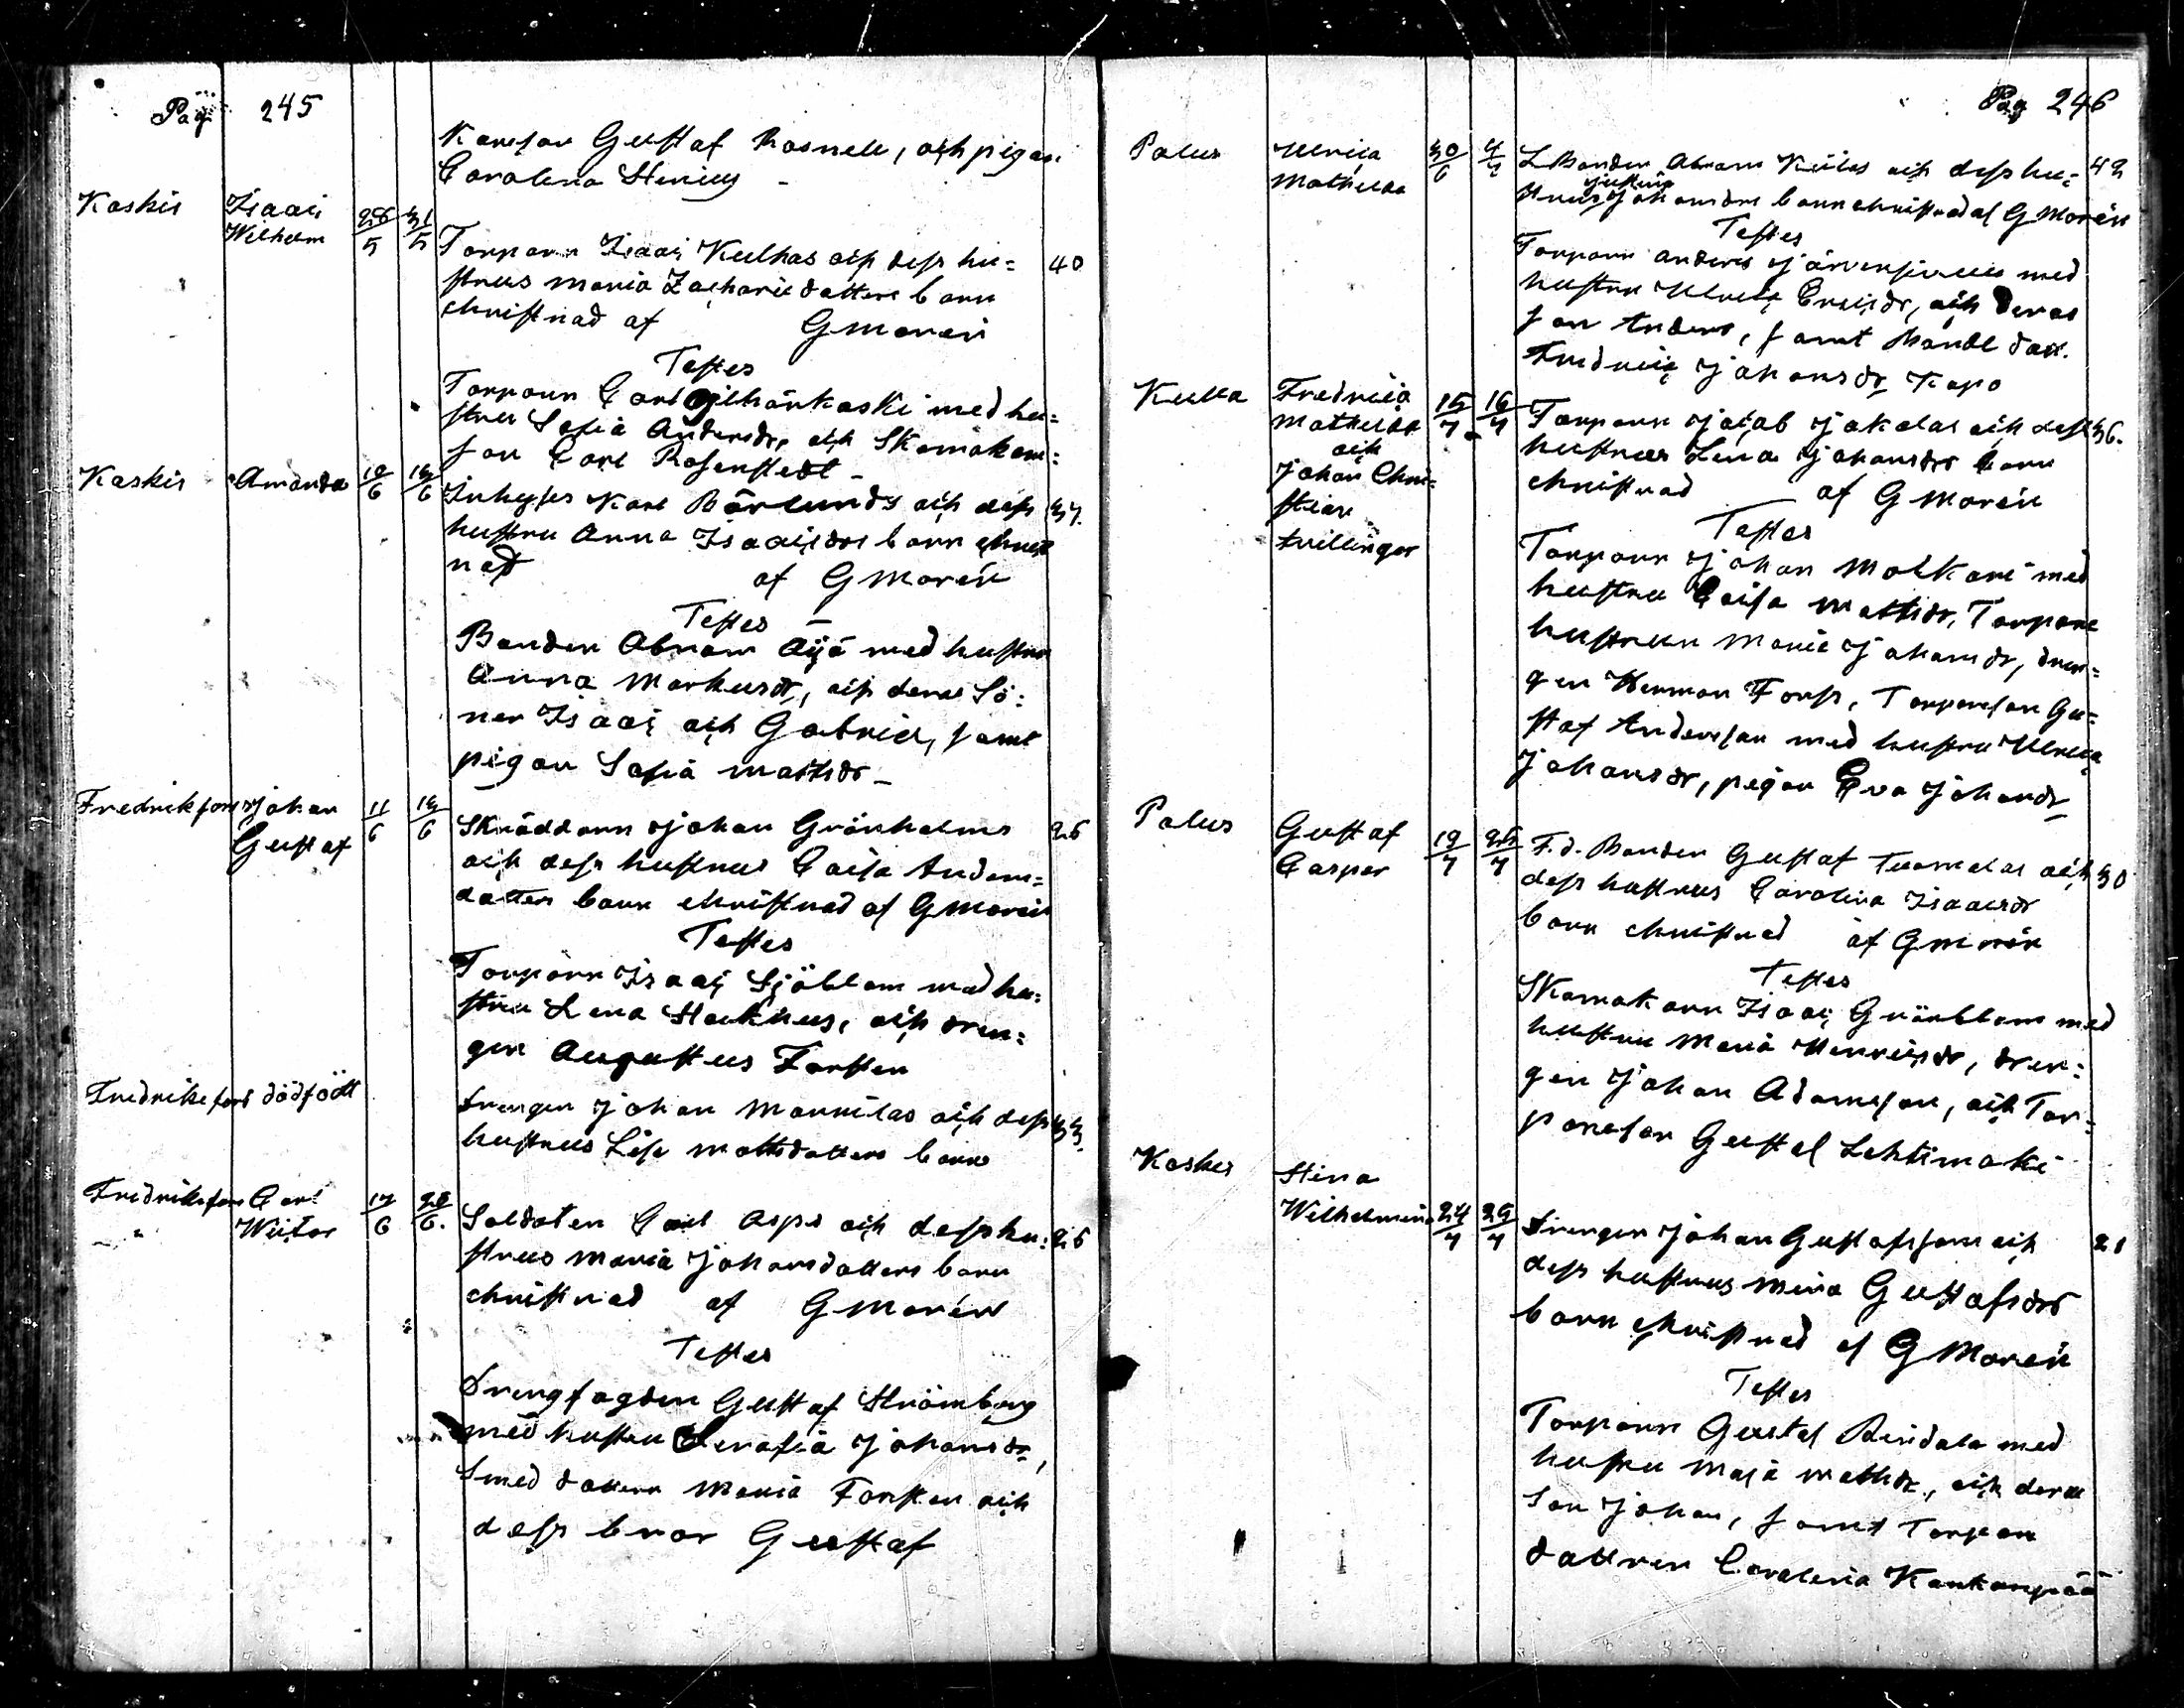 Pag 245
Karlson Gustaf Rosnell, och pigan
Carolina Stenius -
Koskis Isaac
Wilhelm 28/5 31/5
Torparn Isaac Kulhas och dess hu= 40
strus Maria Zachariedotters barn
christnad af G Morén
Testes
Torparn Carl med hu=
stru Sofia Andersdr, och Skomakare=
son Carl Rosenstedt -
Koskis Amanda 12/6 13/6
Inhyses Karl Bärlunds och dess 37.
hustru Anna Isaacsdrs barn christ
nad af G Morén
Testes -
Bonden Abram Äijä med hustru
Anna Markusdr, och deras Sö=
ner Isaac och Gabriel, samt
pigan Sofia Mattsdr -
Fredriksfors Johan
Gustaf 11/6 13/6
Skräddarn Johan Grönholms 26
och dess hustrus Caisa Anders=
dotters barn christnad af G Morén
Testes
Torparn Isaac Sjöblom med hu=
stru Lena Stackeus, och dren=
gen Augustus Forsten
Fredriksfors dödfödt
Drengen Johan Mannilas och dess 33.
hustrus Lisa Mattsdotters barn
Fredriksfors Carl
" Victor 17/6 28/6.
Soldaten Carl Asps och dess hu= 26
strus Maria Johansdotters barn
christnad af G Morén
Testes
Drengfogden Gustaf Strömberg
med hustru Serafia Johansdr,
Smeddottern Maria Forsten och
dess bror Gustaf
Pag 246
Palus Ulrica
Mathilda 30/6 4/7
L. Bonden Abram Kiilas och dess hu= 42
strus Justina Johansdrs barn christnad af G Morén
Testes
Torparn Anders Järvensivu med
hustru Ulrica Ericsdr, och deras
son Anders, samt
Fredrica Johansdr Kapo
Kulla Fredrica
Mathilda
och
Johan Chri=
stian
tvillingar 15/7 16/7
Torparn Jacob Jakolas och dess 36.
hustrus Lena Johansdrs barn
christnad af G Morén
Testes
Torparn Johan Molkari med
hustru Caisa Mattsdr, Torpare
hustrun Maria Johansdr, dren=
gen Herman Forss, Torpareson Gu=
staf Andersson med hustru Ulrica
Johansdr, pigan Eva Johansdr
Palus Gustaf
Casper 19/7 25/7
F.d. Bonden Gustaf Tuomolas och 30
dess hustrus Carolina Isaacsdr
barn christnad af G Morén
Testes
Skomakarn Isaac Grönblom med
hustru Maria Henricsdr, dren=
gen Johan Adamsson, och Tor=
pareson Gustaf Lehtimäki
Koskis Stina
Wilhelmina 24/7 29/7
Drengen Johan Gustafssons och 21
dess hustrus Mina Gustafsdrs
barn christnad af G Morén
Testes
Torparn Gustaf Rindala med
hustru Maja Mattsdr, och deras
son Johan, samt Torpare
dottren Carolina Kankanpää